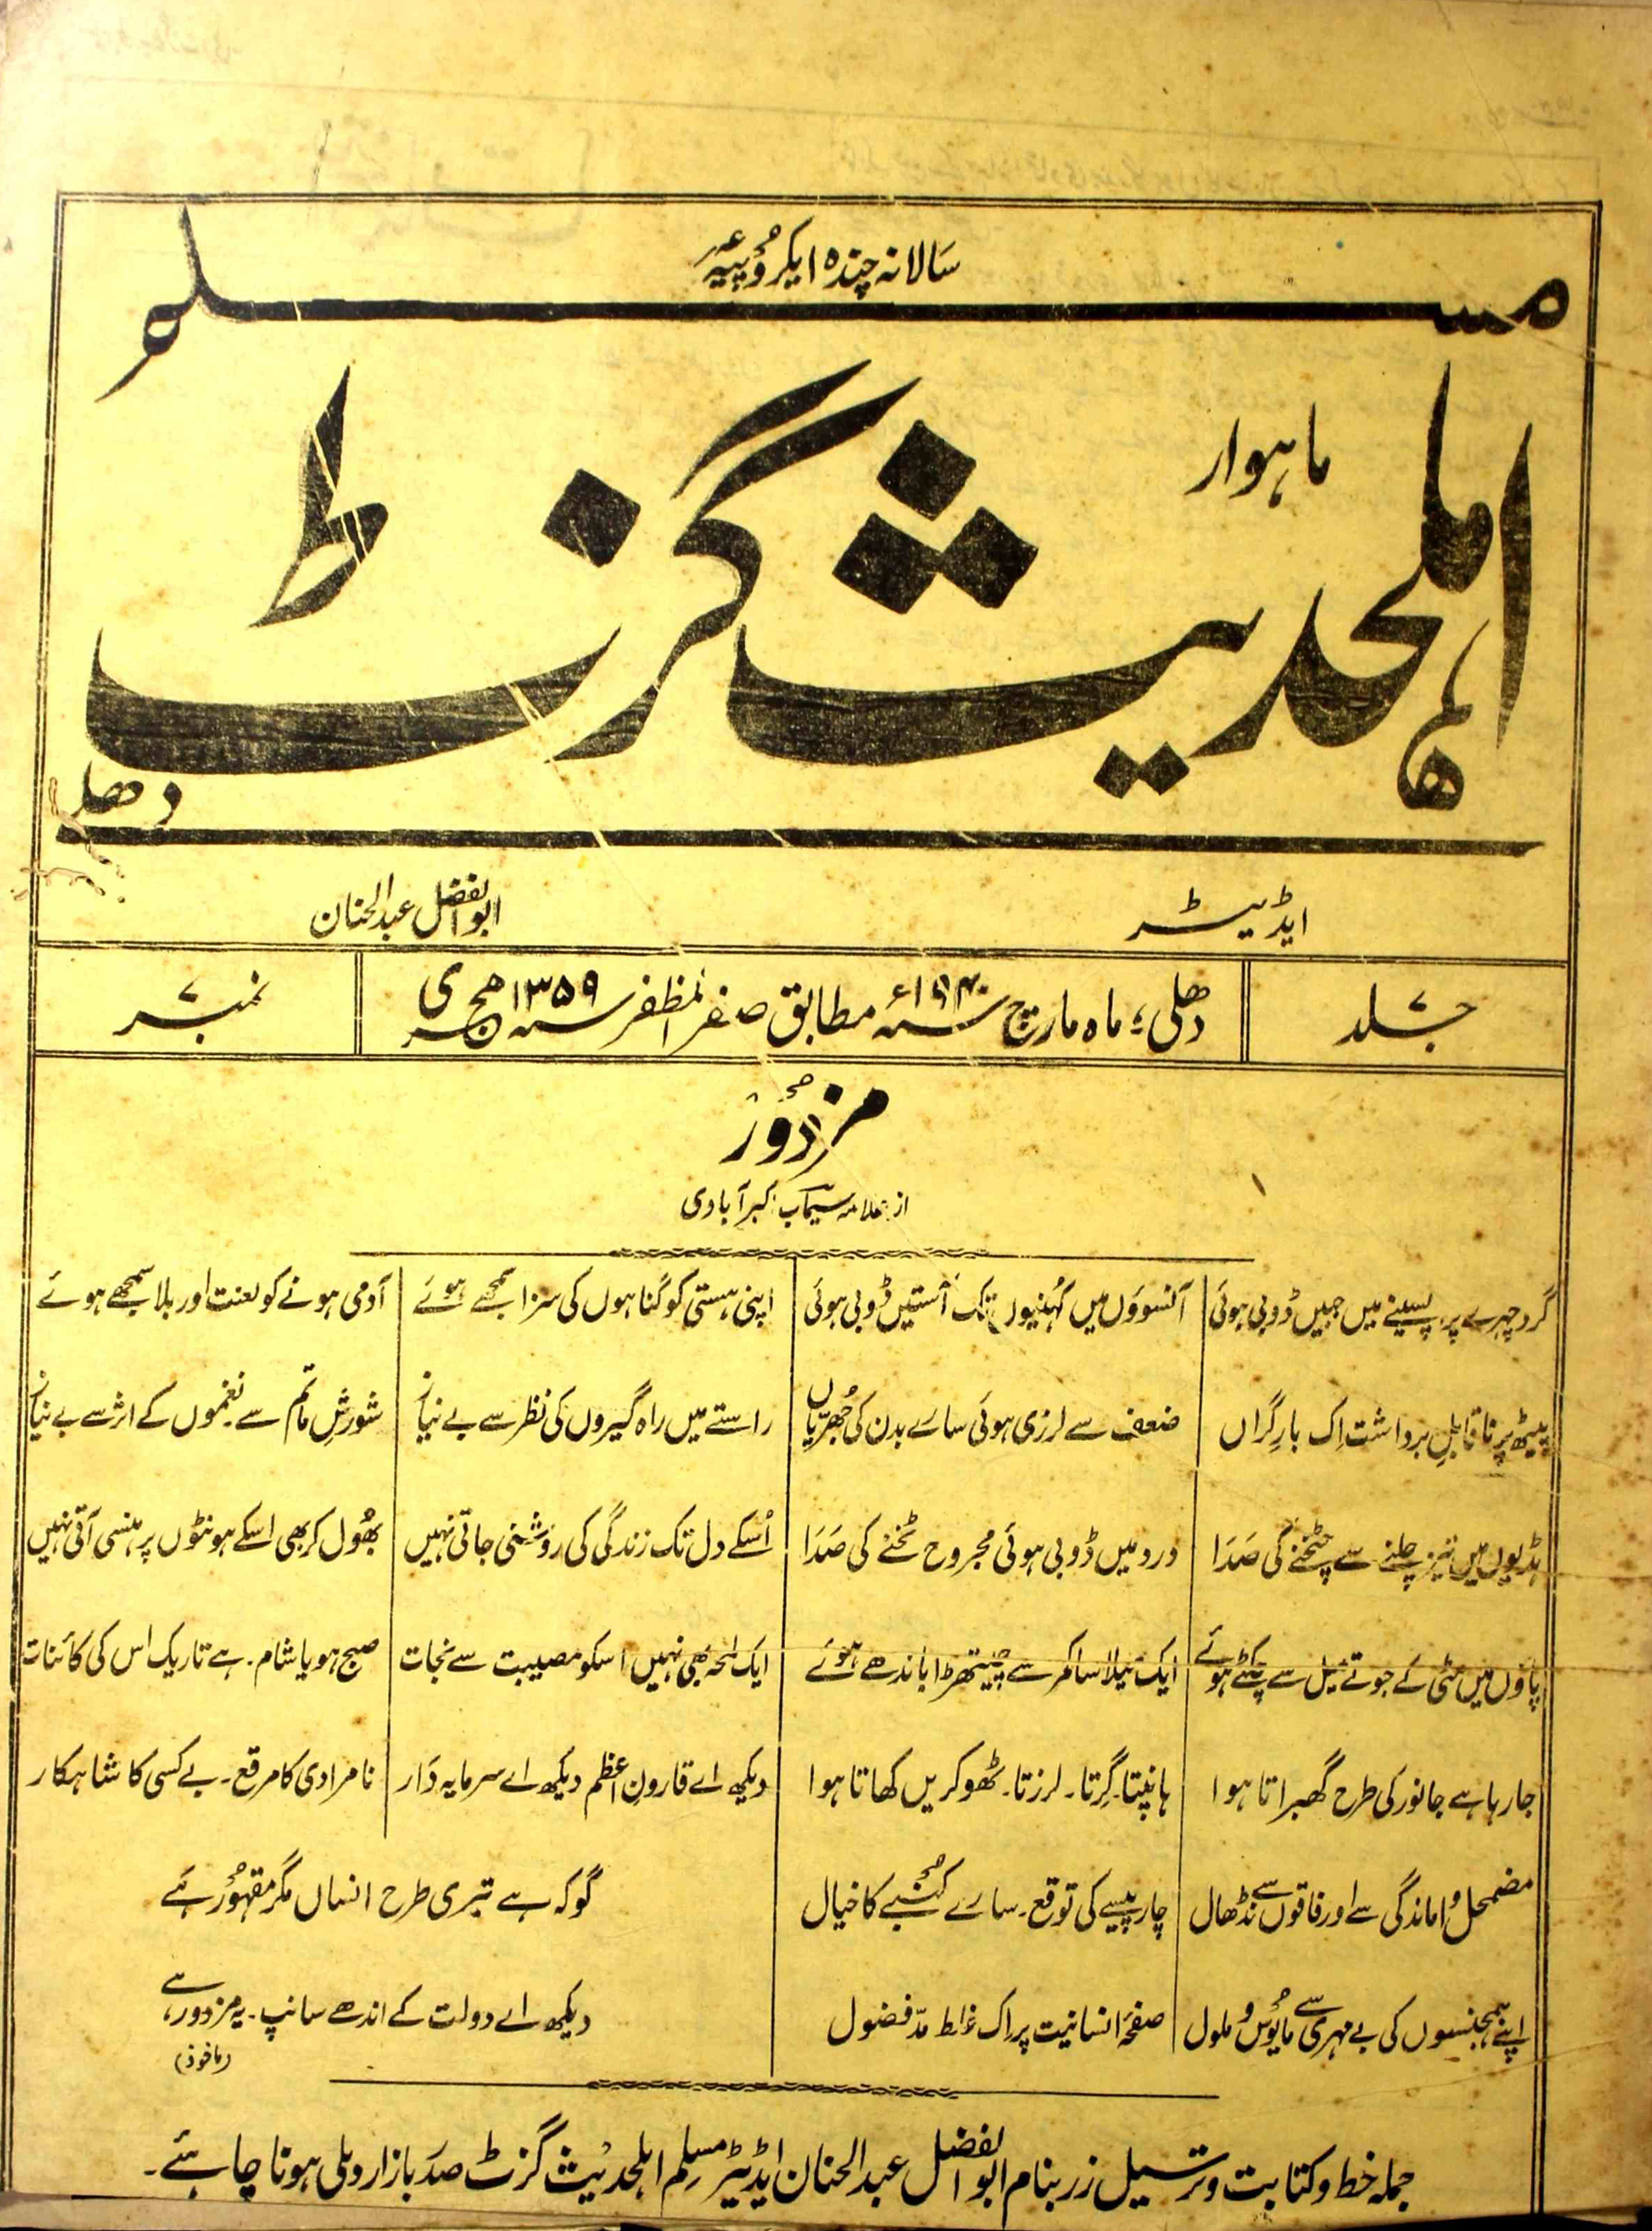 سالانہ چندہ ایکروپیہ
مسلم
ماہوار
اہلحدیث گزٹ
دھلی
ایڈیٹر ابوالفضل عبدالحنان
جلد ۷ دھلی، ماہ مارچ سنہ ۱۹۴۰ء مطابق صفر المظفر سنہ ۱۳۵۹ ہجری نمبر ۷
مزدور
از علامہ سیماب اکبرآبادی
گرد چہرے پر، پسینے میں جبیں ڈوبی ہوئی آنسوؤں میں کُہنیوں تک آستیں ڈوبی ہوئی
پیٹھ پر ناقابلِ برداشت اِک بارِ گراں ضعف سے لرزی ہوئی سارے بدن کی جُھرّیاں
ہڈیوں میں تیز چلنے سے چٹخنے کی صَدَا درد میں ڈوبی ہوئی مجروح ٹخنے کی صَدَا
پاؤں میں مٹی کے جوتے میل سے چکٹے ہوئے ایک میلا سا کمر سے چیتھڑا باندھے ہوئے
جارہا ہے جانور کی طرح گھبراتا ہوا ہانپتا۔ گِرتا۔ لرزتا۔ ٹھوکریں کھاتا ہوا
مضمحل واماندگی سے اور فاقوں سے نڈھال چار پیسے کی توقع۔ سارے کنبے کا خیال
اپنے ہمجنسوں کی بے مہری سے مایُوس و ملول صفحۂ انسانیت پر اِک غلط مدّ فضول
اپنی ہستی کو گناہوں کی سزا سمجھے ہوئے آدمی ہونے کو لعنت اور بلا سمجھے ہوئے
راستے میں راہ گیروں کی نظر سے بے نیاز شورشِ ماتم سے نغموں کے اثر سے بے نیاز
اُسکے دل تک زندگی کی روشنی جاتی نہیں بھُول کر بھی اسکے ہونٹوں پر ہنسی آتی نہیں
ایک لمحہ بھی نہیں اسکو مصیبت سے نجات صبح ہو یا شام۔ ہے تاریک اس کی کائنات
دیکھ اے قارونِ اعظم دیکھ اے سرمایہ دَار نامرادی کا مرقع۔ بے کسی کا شاہکار
گوکہ ہے تیری طرح انساں مگر مقہُور ہے
دیکھ اے دولت کے اندھے سانپ۔ یہ مزدور، ہے
(ماخوذ)
جملہ خط وکتابت وترسیل زر بنام ابوالفضل عبدالحنان ایڈیٹر مسلم اہلحدیث گزٹ صدَر بازار دہلی ہونا چاہئے۔